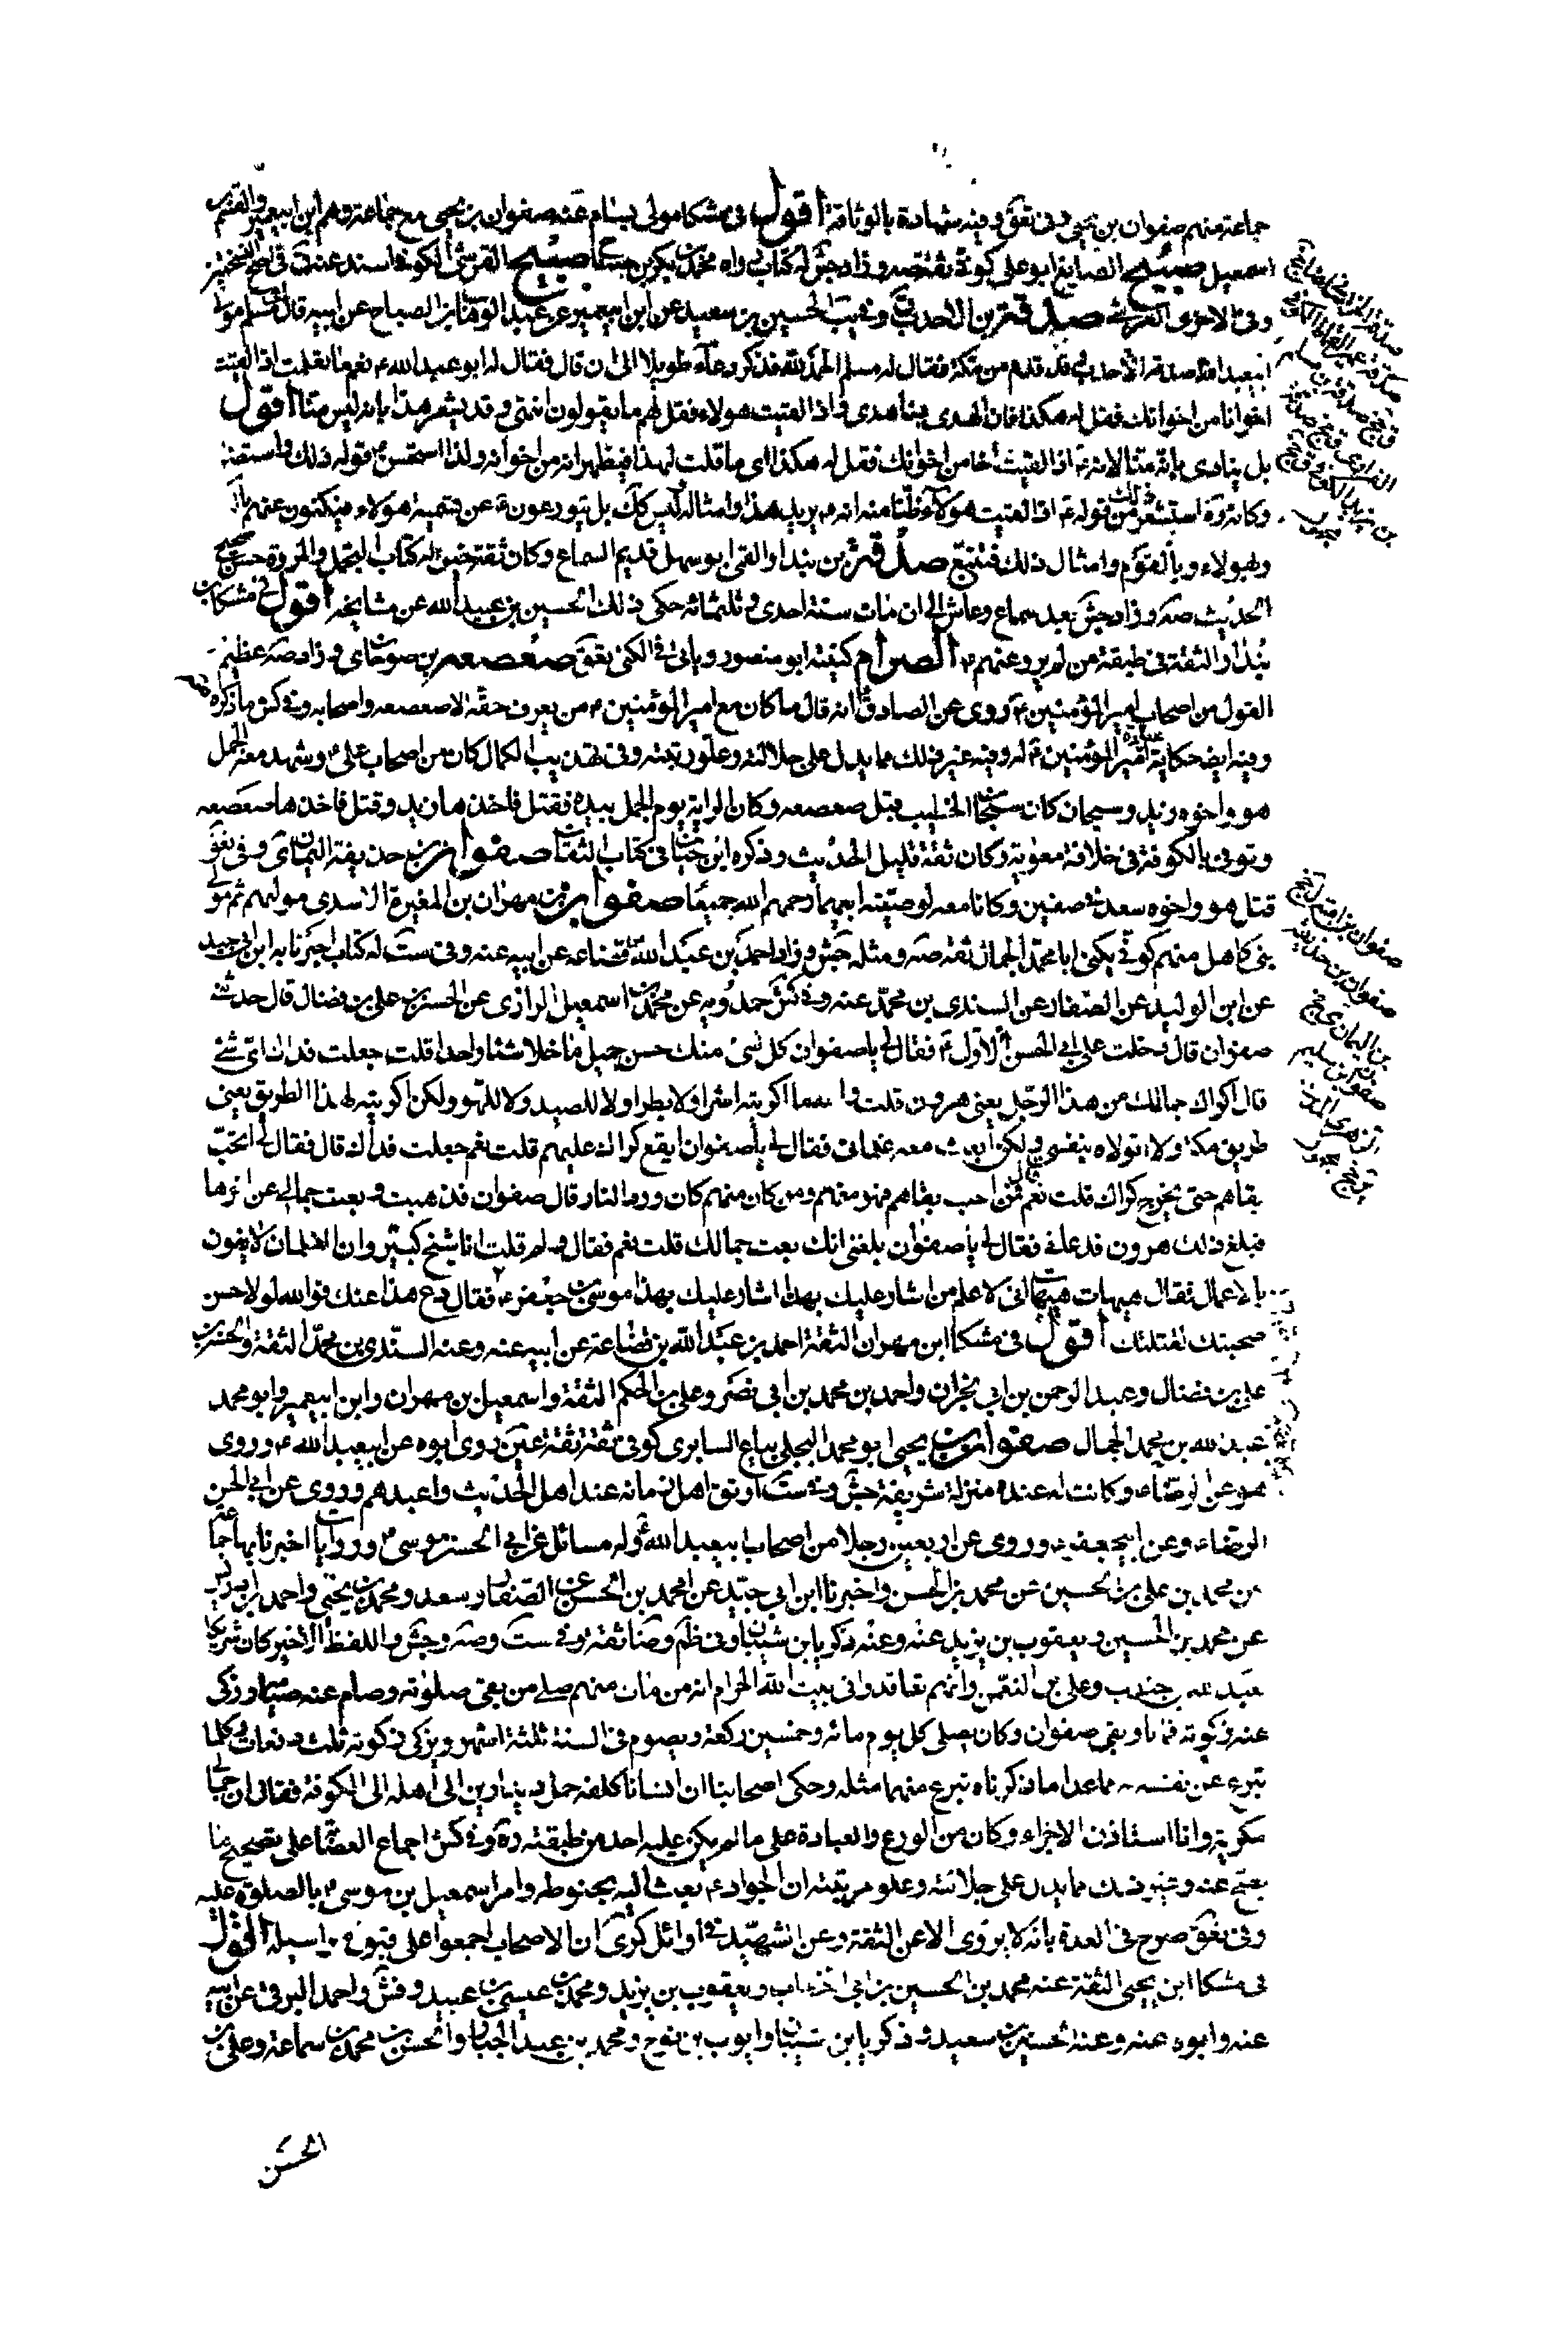 جماعة منهم صفوان بن يحيى وفى تعق وفيه شهادة بالوثاقة أقول فى مشكا مولى بسام عنه صفوان بن يحيى مع جماعة وهم ابن ابيعمير والقسم بن
اسمعيل صبيح الصايغ ابو على كوفى ثقة صه وزاد جش له كتاب رواه محمد بن بكر بن جناح صبيح القرشى الكوفى اسند عنه ق فى نسختين
وفى الاخرى القرشى صدقة بن الاحدب ق وفى يب الحسين بن سعيد عن ابن ابيعمير عن عبد الوهاب بن الصباح عن ابيه قال لقى مسلم مولى
ابيعبد الله صدقة الاحدب قد قدم من مكة فقال له مسلم الحمد لله فذكر دعاء طويلا الى ان قال فقال له ابو عبد الله ع نعم ما تعلمت اذا لقيت
اخوانا من اخوانك فقل له هكذا فان الهدى بنا هدى واذا لقيت هولاء فقل لهم ما يقولون انتهى وقد يشعر هذا بانه ليس منا أقول
بل ينادى بانه منا لانه ع اذا لقيت اخا من اخوانك فقل له هكذا اى ما قلت لهذا فيظهر انه من اخوانه ولذا استحسن ع قوله ذلك واستصفه
وكانه ره استشعر ذلك من قوله ع اذا لقيت هولاء ظنا منه انه ع يريد هذا وامثاله وليس كك بل يتورعون ع عن تسمية هولاء فيكنون عنهم بال
وبهولاء وبالقوم وامثال ذلك فتتبع صدقة بن بندار القمى ابو سهل قديم السماع وكان ثقة خير له كتاب التجمل والمروة حسن صحيح
الحديث صه وزاد جش بعد سماع وعاش الى ان مات سنة احدى وثلثمائة حكى ذلك الحسين بن عبيد الله عن مشايخه أقول فى مشكا ابن
بندار الثقة فى طبقة من لم يرو عنهم ع الصرام كنيته ابو منصور وياتى فى الكنى تعق صعصعه بن صوحان ى وزاد صه عظيم
القول من اصحاب امير المؤمنين ع روى عن الصادق ع انه قال ما كان مع امير المؤمنين ع من يعرف حقه الا صعصعه واصحابه وفى كش ما ذكره صه
وفيه ايضا حكاية عيادة امير المؤمنين ع له وفيه غير ذلك مما يدل على جلالته وعلو رتبته وفى تهذيب الكمال كان من اصحاب على ع وشهد معه الجمل
هو واخوه زيد وسيحان كان سيحان الخطيب قبل صعصعه وكان الراية يوم الجمل بيده فقتل فاخذها زيد وقتل فاخذها صعصعه
وتوفى بالكوفة فى خلافة معوية وكان ثقة قليل الحديث وذكره ابن حبان فى كتاب الثقات صفوان بن حذيفة اليمان ى وفى تعق
قتل هو واخوه سعد فى صفين وكانا معه لوصيته ابيهما رحمهم الله جميعا صفوان بن مهران بن المغيرة الاسدى مولاهم ثم مولى
بنى كاهل منهم كوفى يكنى ابا محمد الجمال ثقة صه ومثله جش وزاد احمد بن عبد الله بن قضاعه عن ابيه عنه وفى ست له كتاب اخبرنا به ابن ابى جيد
عن ابن الوليد عن الصفار عن السندى بن محمد عنه وفى كش حمدويه عن محمد بن اسمعيل الرازى عن الحسن بن على بن فضال قال حدثنى
صفوان قال دخلت على ابى الحسن الاول ع فقال لى يا صفوان كل شئ منك حسن جميل ما خلا شئا واحدا قلت جعلت فداك اى شئ
قال اكراك جمالك من هذا الرجل يعنى هرون قلت والله ما اكريته اشرا ولا بطرا ولا للصيد ولا للهو ولكن اكريته لهذا الطريق يعنى
طريق مكة ولا اتولاه بنفسى ولكن ابعث معه غلمانى فقال لى يا صفوان ايقع كراك عليهم قلت نعم جعلت فداك قال فقال لى اتحب
بقاهم حتى يخرج كراك قلت نعم قال من احب بقاهم فهو منهم ومن كان منهم كان ورد النار قال صفوان فذهبت وبعت جمالى عن اخرها
فبلغ ذلك هرون فدعانى فقال لى يا صفوان بلغنى انك بعت جمالك قلت نعم فقال ولم قلت انا شيخ كبير وان الغلمان لا يفون
بالاعمال فقال هيهات هيهات انى لاعلم من اشار عليك بهذا اشار عليك بهذا موسى بن جعفر ع فقال دع هذا عنك فوالله لولا حسن
صحبتك لقتلتك أقول فى مشكا ابن مهران الثقة احمد بن عبد الله بن قضاعة عن ابيه عنه وعنه السندى بن محمد الثقة والحسن بن
على بن فضال وعبد الرحمن بن ابى نجران واحمد بن محمد بن ابى نصر وعلى بن الحكم الثقة واسمعيل بن مهران وابن ابيعمير وابو محمد
عبد الله بن محمد الجمال صفوان بن يحيى ابو محمد البجلى بياع السابرى كوفى ثقة ثقة عين روى ابوه عن ابيعبد الله ع وروى
هو عن الرضا ع وكانت له عنده منزلة شريفة جش وفى ست اوثق اهل زمانه عند اهل الحديث واعبدهم وروى عن ابى الحسن
الرضا ع وعن ابيجعفر ع وروى عن اربعين رجلا من اصحاب ابيعبد الله ع وله مسائل عن ابى الحسن موسى ع وروايات اخبرنا بها جماعة
عن محمد بن على بن الحسين عن محمد بن الحسن واخبرنا ابن ابى جيد عن محمد بن الحسن عن الصفار وسعد ومحمد بن يحيى واحمد بن ادريس
عن محمد بن الحسين ويعقوب بن يزيد عنه وعنه زكريا بن شيبان وفى ظم وضا ثقة وفى ست وصه وجش واللفظ للاخير كان شريكا
لعبد الله بن جندب وعلى بن النعمن وانهم تعاقدوا فى بيت الله الحرام انه من مات منهم صلى من بقى صلوته وصام عنه صيامه وزكى
عنه زكوته فماتا وبقى صفوان وكان يصلى كل يوم مائه وخمسين ركعة ويصوم فى السنة ثلثة اشهر ويزكى زكوته ثلث دفعات وكلما
تبرع عن نفسه مما عدا ما ذكرناه تبرع عنهما مثله وحكى اصحابنا ان انسانا كلفه حمل دينارين الى اهله الى الكوفة فقال ان جمالى
مكرية وانا استاذن الاجراء وكان من الورع والعبادة على ما لم يكن عليه احد من طبقته ره وفى كش اجماع العصابة على تصحيح ما
يصح عنه وغير ذلك مما يدل على جلالته وعلو مرتبته ان الجواد ع بعث اليه بحنوطه وامر اسمعيل بن موسى ع بالصلوة عليه
وفى تعق صرح فى العدة بانه لا يروى الا عن الثقة وعن الشهيد فى اوائل كرى ان الاصحاب اجمعوا على قبول مراسيله أقول
فى مشكا ابن يحيى الثقة عنه محمد بن الحسين بن ابى الخطاب ويعقوب بن يزيد ومحمد بن عيسى بن عبيد وفش واحمد البرقى عن ابيه
عنه وابوه عنه وعنه الحسين بن سعيد وزكريا بن شيبان وايوب بن نوح ومحمد بن عبد الجبار والحسن بن محمد بن سماعة وعلى بن
الحسن
صفوان بن امية ل جخ
صفوان بن حذيفة
بن اليمان ى جخ